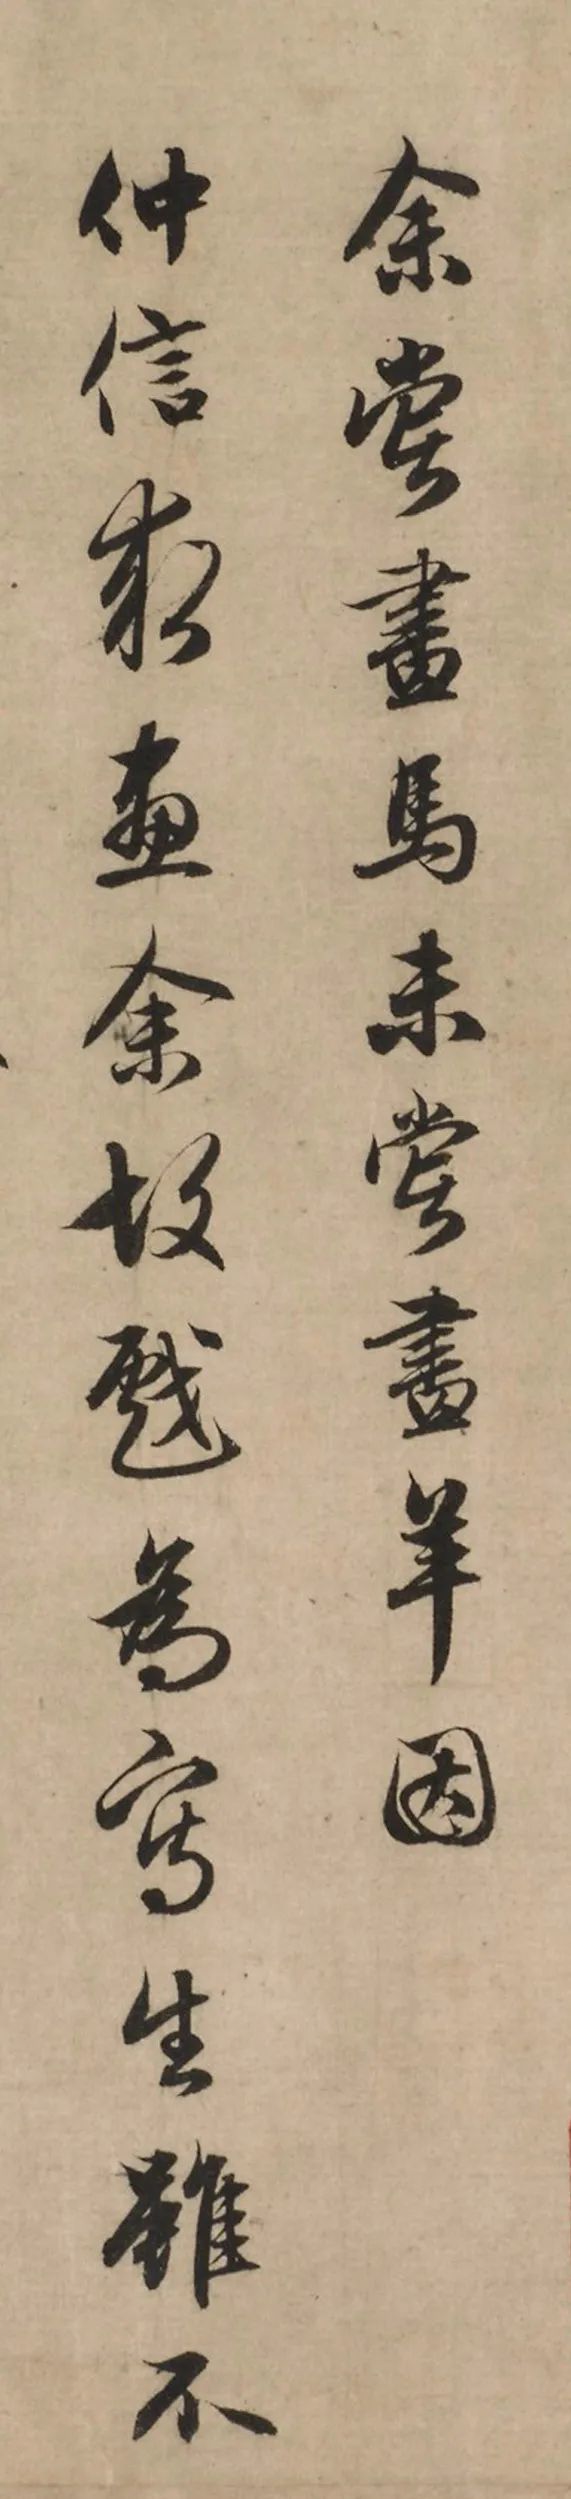 余嘗畫馬未嘗畫羊因
仲信求畫余故戲為寫生雖不